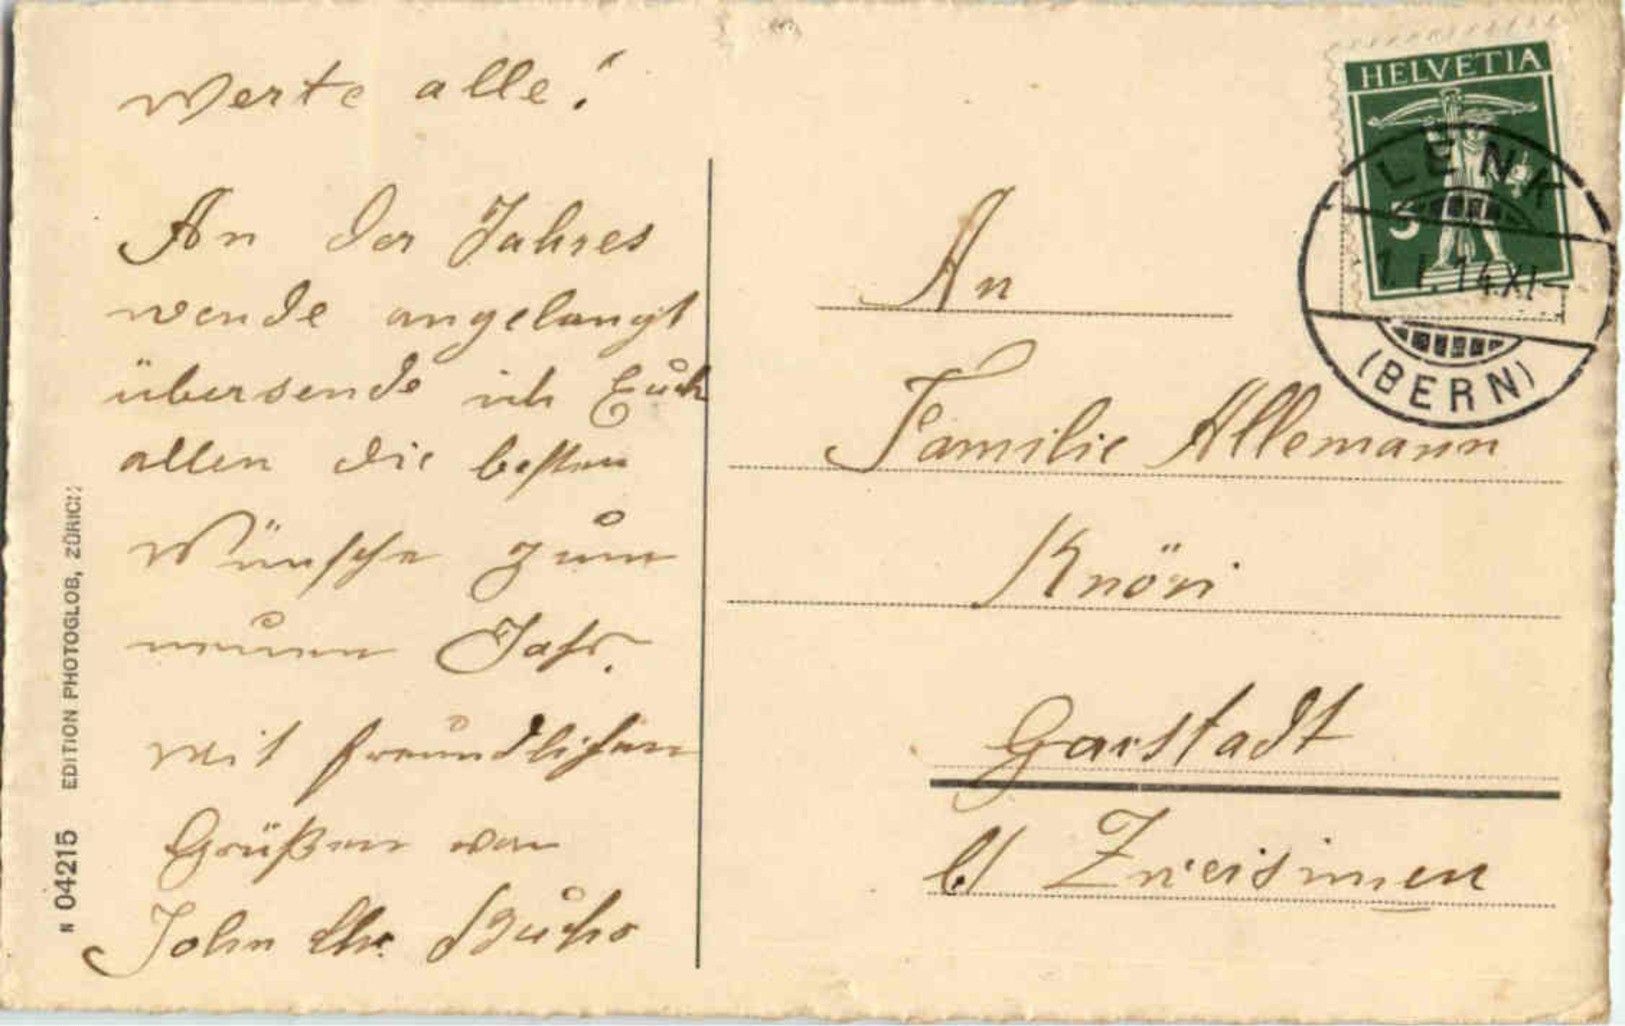 Werte alle!
An der Jahres
wende angelangt
übersende ich Euch
allen die besten
Wünsche zum
neuen Jahr.
Mit freundlichen
Grüßen von
John Chr.
An
Familie Allemann
Knöri
Garstadt
b/ Zweisimmen
HELVETIA
5
LENK
1.I.14.XI-
(BERN)
N 04215 EDITION PHOTOGLOB, ZÜRICH